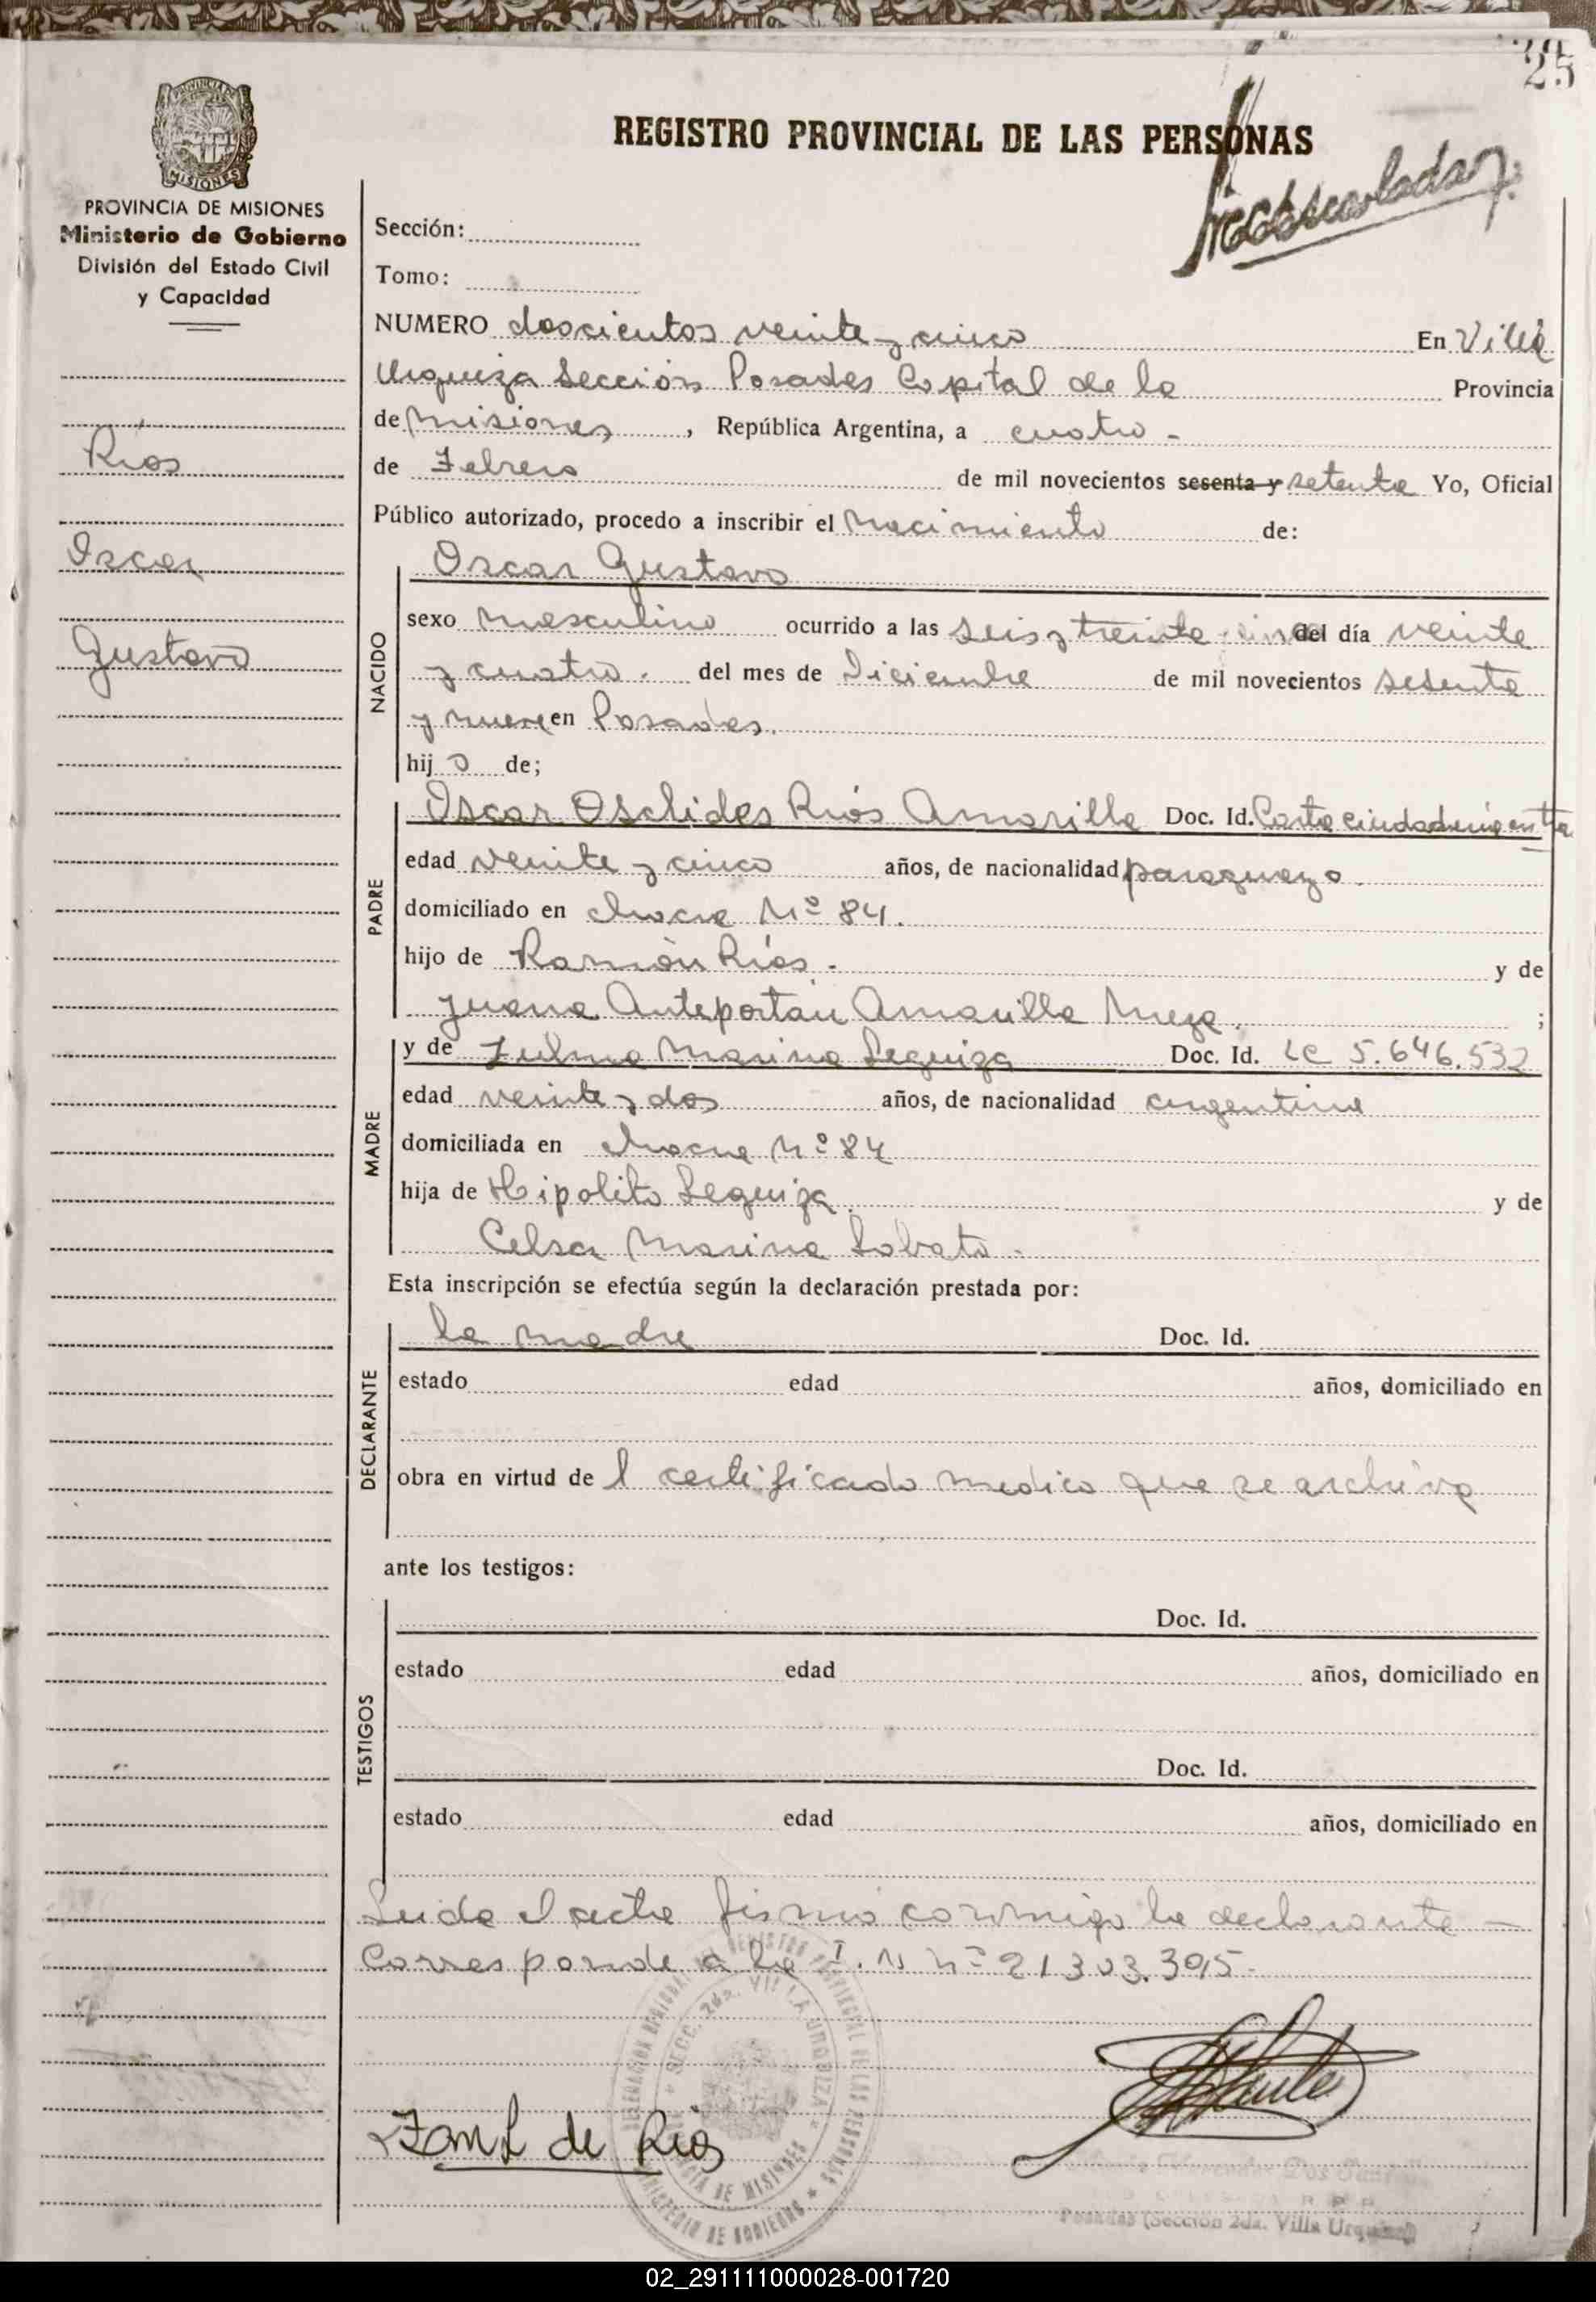 25
PROVINCIA DE MISIONES
Ministerio de Gobierno
División del Estado Civil
y Capacidad
REGISTRO PROVINCIAL DE LAS PERSONAS
Sección:
Tomo:
NUMERO doscientos veinte y cinco En Villa
Urquiza Sección Posadas Capital de la Provincia
de Misiones, República Argentina, a cuatro -
de Febrero de mil novecientos sesenta y setenta Yo, Oficial
Público autorizado, procedo a inscribir el Nacimiento de:
Ríos
Oscar
Gustavo
NACIDO
Oscar Gustavo
sexo masculino ocurrido a las seis y treinta cinco del día veinte
y cuatro. del mes de Diciembre de mil novecientos sesenta
y nueve en Posadas.
hijo de;
PADRE
Oscar Ríos Amarilla Doc. Id. Carta ciudadanía en
edad veinte y cinco años, de nacionalidad paraguaya.
domiciliado en chacra Nº 84.
hijo de Ramón Ríos. y de
Juana Amarilla Meza. ;
MADRE
y de Zulma Marina Leguiza Doc. Id. LC 5.646.532
edad veinte y dos años, de nacionalidad argentina
domiciliada en chacra Nº 84
hija de Hipolito Leguiza y de
Celsa Marina Lobato.
Esta inscripción se efectúa según la declaración prestada por:
DECLARANTE
la madre Doc. Id.
estado edad años, domiciliado en
obra en virtud de l certificado medico que se archiva
ante los testigos:
TESTIGOS
Doc. Id.
estado edad años, domiciliado en
Doc. Id.
estado edad años, domiciliado en
Leida el acta firma conmigo la declarante -
Corresponde a la I. N nº 21303.395-
SECC. 2da. VILLA URQUIZA
MINISTERIO DE GOBIERNO
de Ríos
Posadas (Sección 2da. Villa Urquiza)
02_291111000028-001720